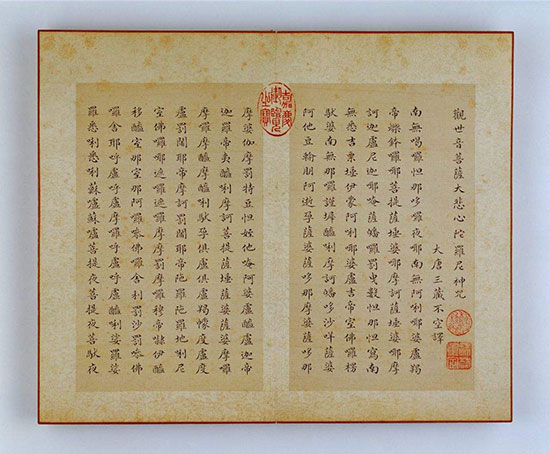 觀世音菩薩大悲心陀羅尼神咒
大唐三藏不空譯
南無喝羅怛那哆羅夜耶南無阿唎耶婆盧羯
帝爍鉢囉耶菩提薩埵婆耶摩訶薩埵婆耶摩
訶迦盧尼迦耶唵薩皤囉罰曳數怛那怛寫南
無悉吉栗埵伊蒙阿唎耶婆盧吉帝室佛囉楞
馱婆南無那囉謹墀醯唎摩訶皤哆沙咩薩婆
阿他豆輸朋阿逝孕薩婆薩哆那摩婆薩哆那
摩婆伽摩罰特豆怛姪他唵阿婆盧醯盧迦帝
迦羅帝夷醯唎摩訶菩提薩埵薩婆薩婆摩囉
摩囉摩醯摩醯唎馱孕俱盧俱盧羯懞度盧度
盧罰闍耶帝摩訶罰闍耶帝陀羅陀羅地唎尼
室佛囉耶遮囉遮囉摩摩罰摩囉穆帝囇伊醯
移醯室那室那阿囉嘇佛囉舍利罰沙罰嘇佛
囉舍耶呼盧呼盧摩囉呼盧呼盧醯唎娑囉娑
囉悉唎悉唎蘇嚧蘇嚧菩提夜菩提夜菩馱夜
嘉慶御覽之寶